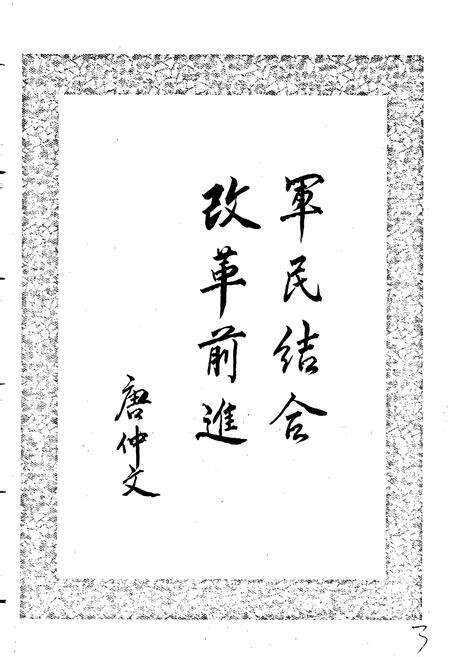 軍民結合
改革前進
唐仲文